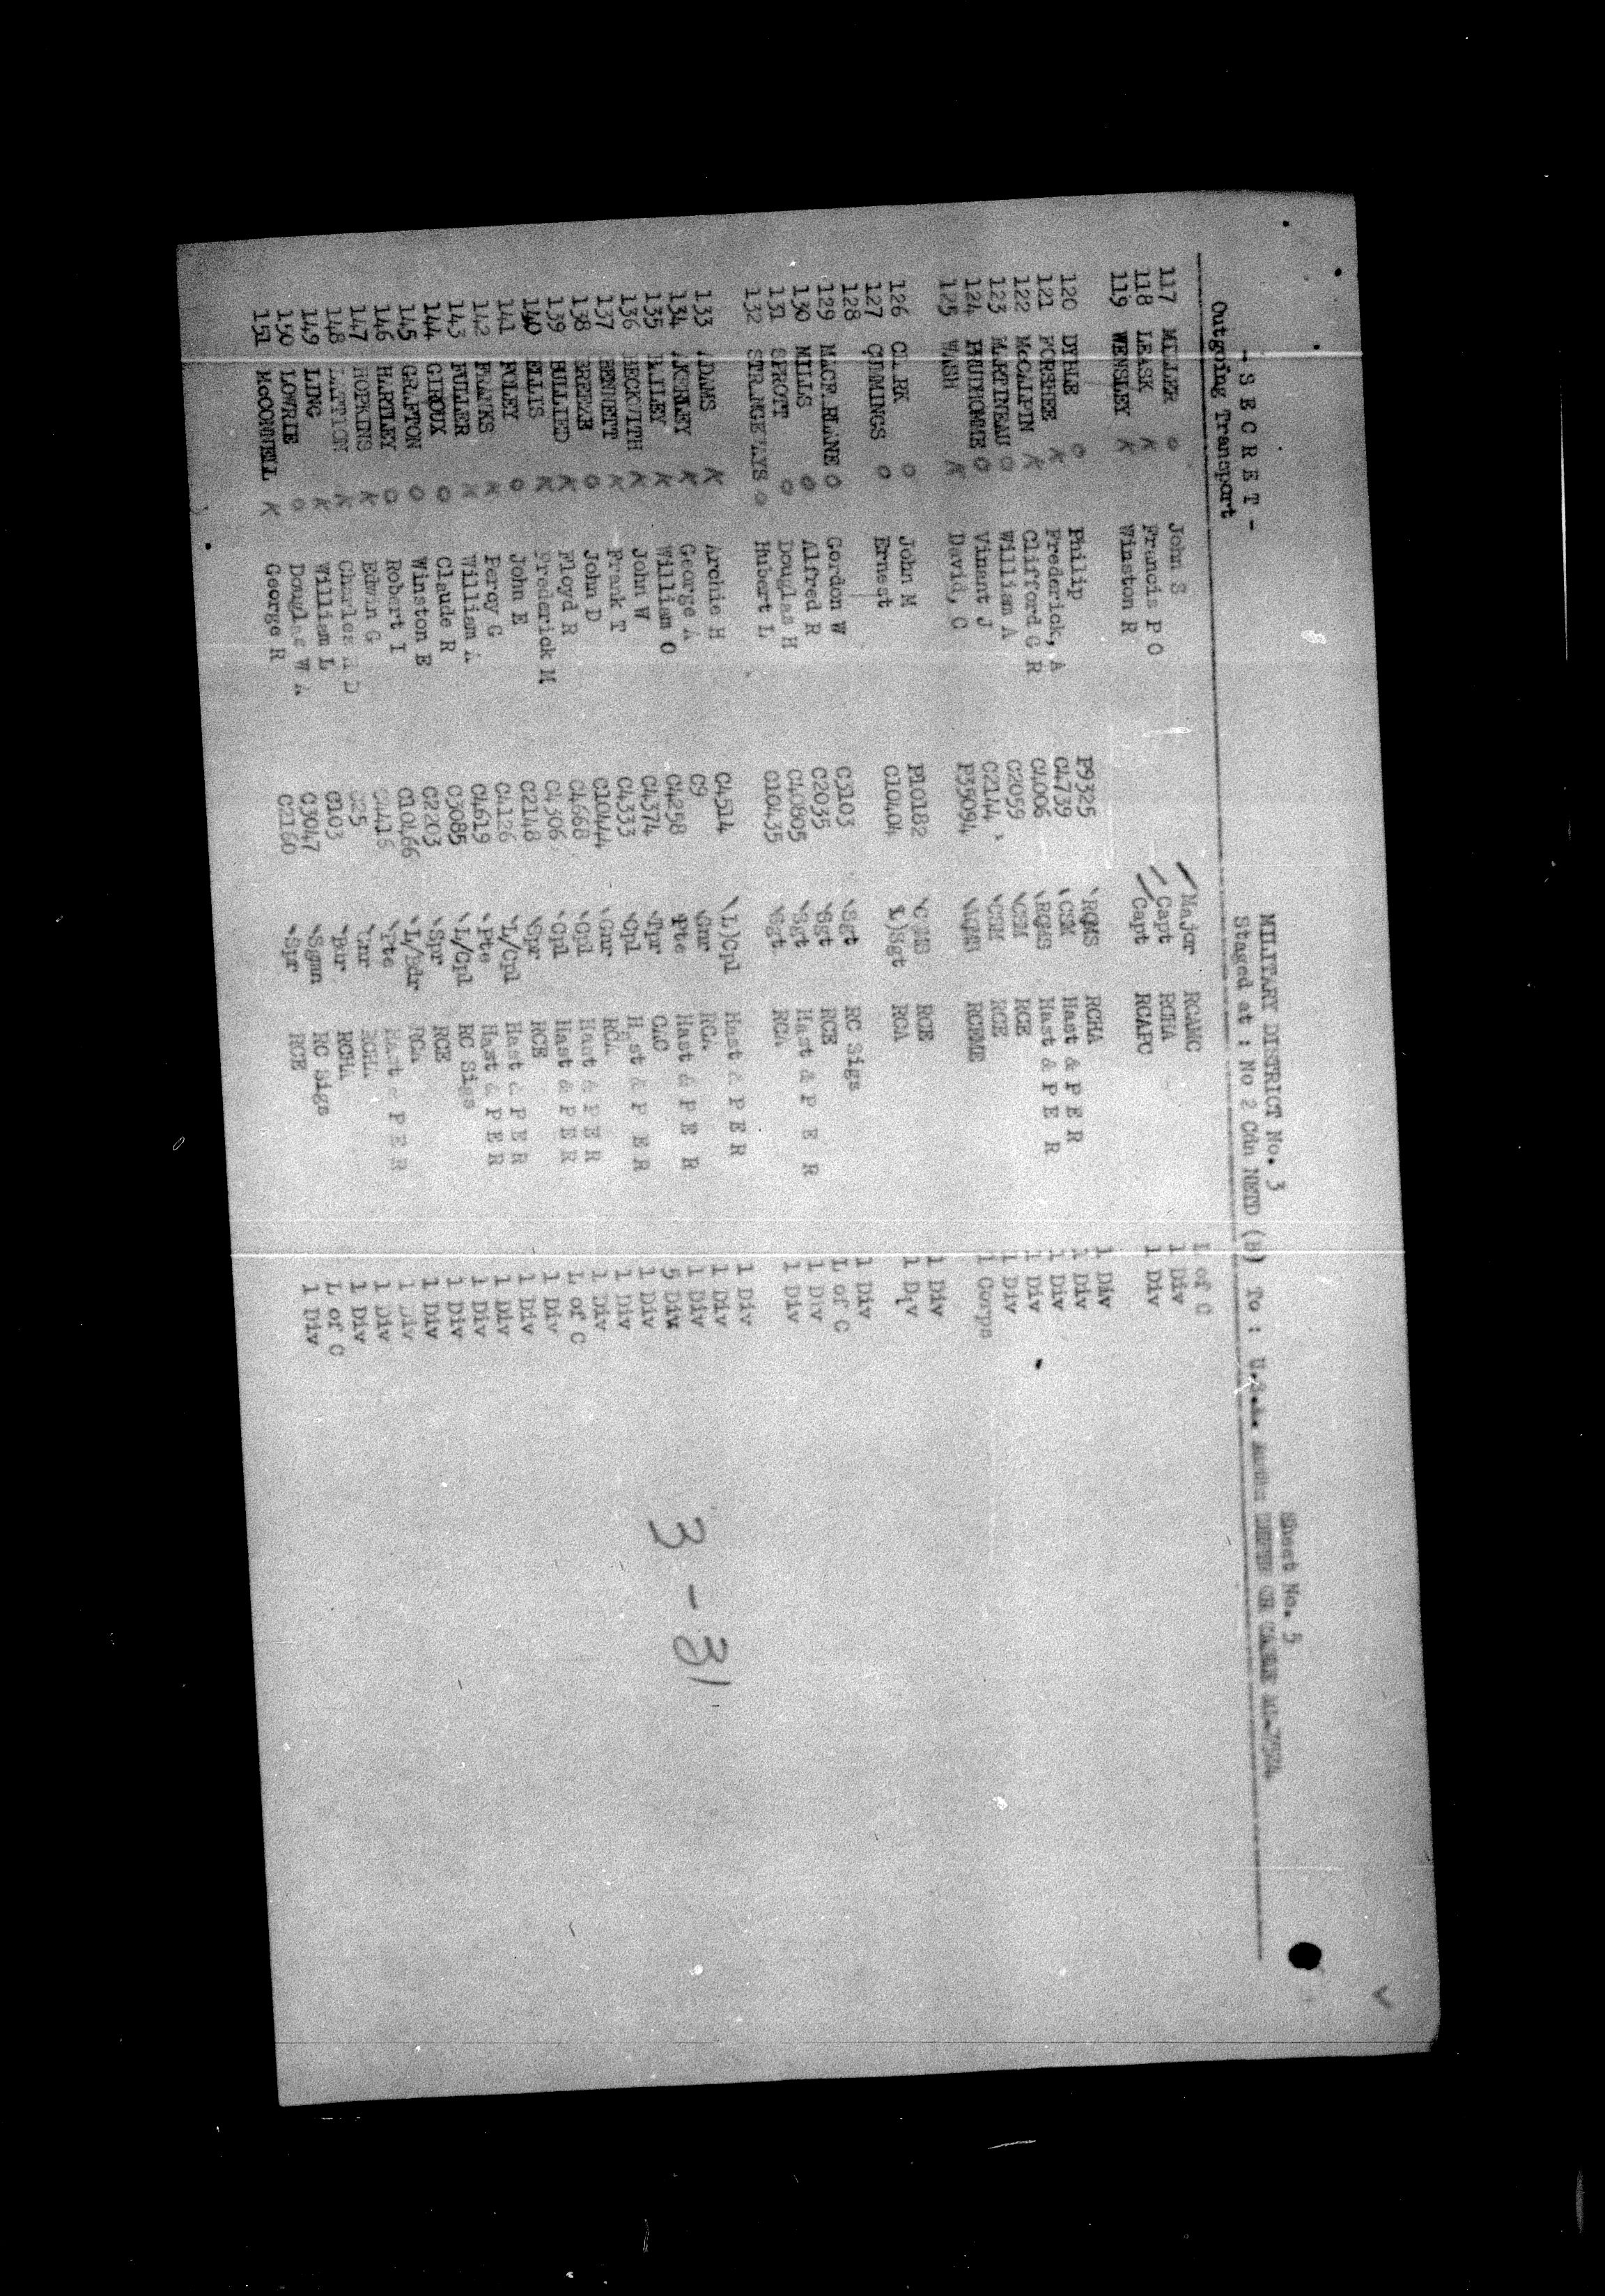 - S E C R E T - MILITARY DISTRICT No. 3 Sheet No. 5
Outgoing Transport Staged at : No 2 Cdn NETD (B) To :
117 MILLER o John S Major RCAMC L of C
118 LEASK x Francis P O Capt RCHA 1 Div
119 WENSLEY x Winston R Capt RCAPC 1 Div
120 DYBLE o Philip P9325 RQMS RCHA 1 Div
121 FORSHEE x Frederick, A C4739 CSM Hast & P E R 1 Div
122 McCALPIN x Clifford G R C4006 RQMS Hast & P E R 1 Div
123 MARTINEAU o William A C2059 CSM RCE 1 Div
124 PRUDHOMME o Vinant J C2144 CSM RCE 1 Div
125 WASH x David, C F35094 AQMS RCEME 1 Corps
126 CLARK o John M P10182 CQMS RCE 1 Div
127 CUMMINGS o Ernest C10404 L)Sgt RCA 1 Div
128
129 MACFARLANE o Gordon W C3103 Sgt RC Sigs 1 Div
130 MILLS o Alfred R C2035 Sgt RCE L of C
131 SPROTT o Douglas H C40805 Sgt Hast & P E R 1 Div
132 STRANGEWAYS o Hubert L C10435 Sgt RCA 1 Div
133 ADAMS x Archie H C4514 L)Cpl Hast & P E R 1 Div
134 AKERLEY x George A C9 Gnr RCA 1 Div
135 BAILEY x William O C4258 Pte Hast & P E R 1 Div
136 BECKWITH x John W C4374 Tpr CAC 5 Div
137 BENNETT x Frank T C4333 Cpl Hast & P E R 1 Div
138 BREEZE o John D C10444 Gnr RCA 1 Div
139 BULLIED x Floyd R C4668 Cpl Hast & P E R 1 Div
140 ELLIS x Frederick M C4306 Cpl Hast & P E R L of C
141 FOLEY o John E C2148 Spr RCE 1 Div
142 FRANKS x Percy G C4126 L/Cpl Hast & P E R 1 Div
143 FULLER x William A C4619 Pte Hast & P E R 1 Div
144 GIROUX o Claude R C3085 L/Cpl RC Sigs 1 Div
145 GRAFTON o Winston E C2203 Spr RCE 1 Div
146 HARTLEY o Robert I C10466 L/Bdr RCA 1 Div
147 HOPKINS x Edwin G C4416 Pte Hast & P E R 1 Div
148 x Charles D C25 Gnr RCHA 1 Div
149 LING x William L C103 Bdr RCHA 1 Div
150 LOWRIE o Douglas W A C3047 Sgmn RC Sigs L of C
151 McCONNELL x George R C2160 Spr RCE 1 Div
3 - 31